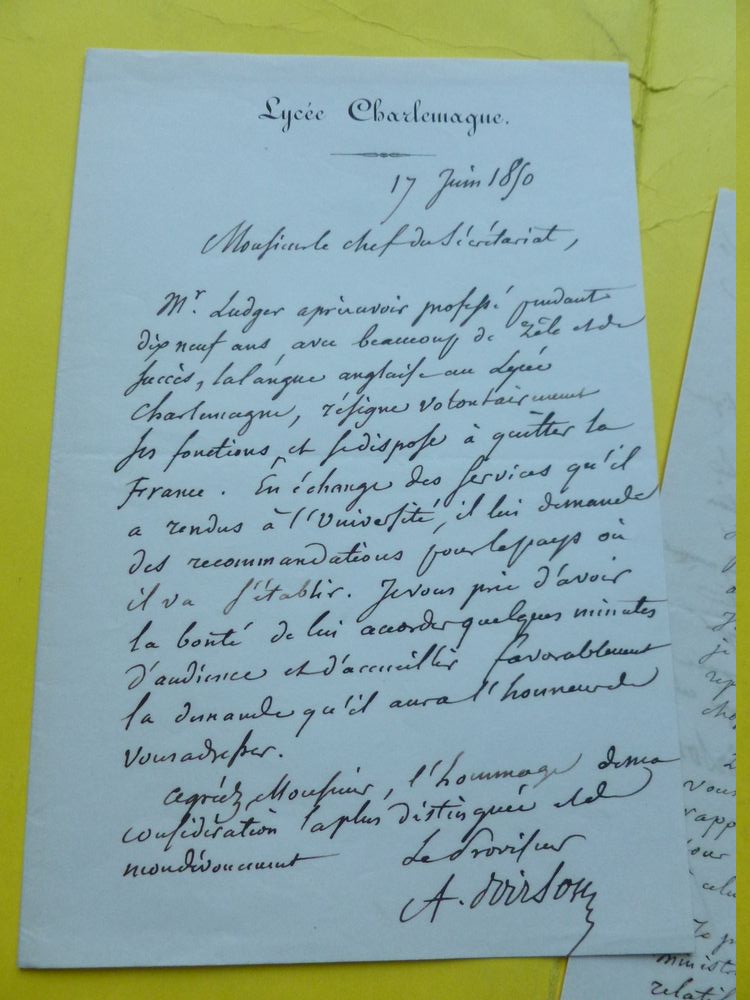 Lycée Charlemagne.
17 Juin 1850
Monsieur le chef du Sécrétariat,
Mr. Ludger après avoir professé pendant
dix neuf ans, avec beaucoup de zèle et de
succès, la langue anglaise au Lycée
Charlemagne, résigne volontairement
ses fonctions, et se dispose à quitter la
France. En échange des services qu'il
a rendus à l'Université, il lui demande
des recommandations pour le pays où
il va s'établir. Je vous prie d'avoir
la bonté de lui accorder quelques minutes
d'audience et d'accueillir favorablement
la demande qu'il aura l'honneur de
vous adresser.
Agréez, Monsieur, l'hommage de ma
considération la plus distinguée et de
mon dévouement
Le Proviseur
A. Poirson
je
vous
rapp
relatif